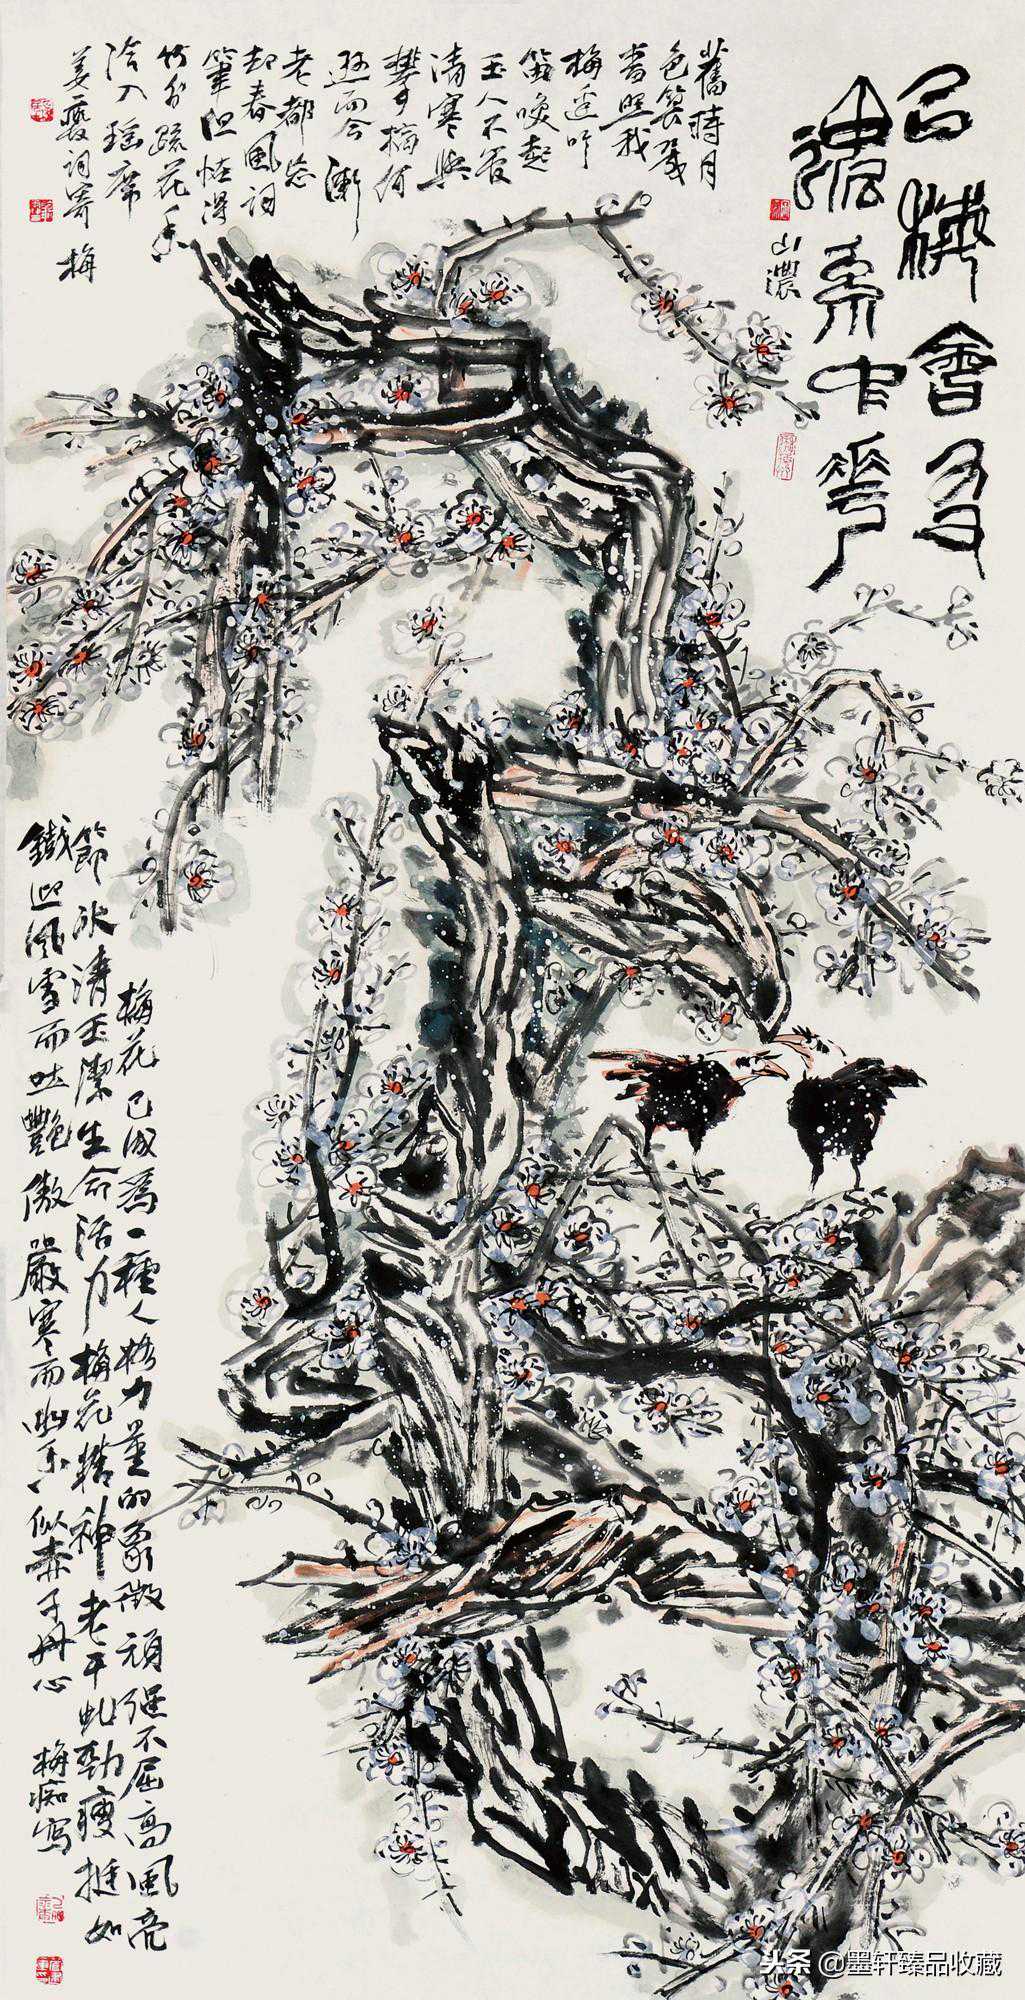 㠯梅會友
山濃
舊時月
色算幾
番照我
梅邊吹
笛喚起
玉人不管
清寒與
攀摘何
遜而今漸
老都忘
却春風詞
筆但怪得
竹外疏花香
冷入瑤席
姜夔詞寄梅
梅花已成爲一種人格力量的象徵頑强不屈高風亮
節冰清玉潔生命活力梅花精神老干虬勁瘦挺如
鐵迎風雪而吐艷傲嚴寒而幽香似赤子丹心
梅痴寫
头条 @墨轩臻品收藏